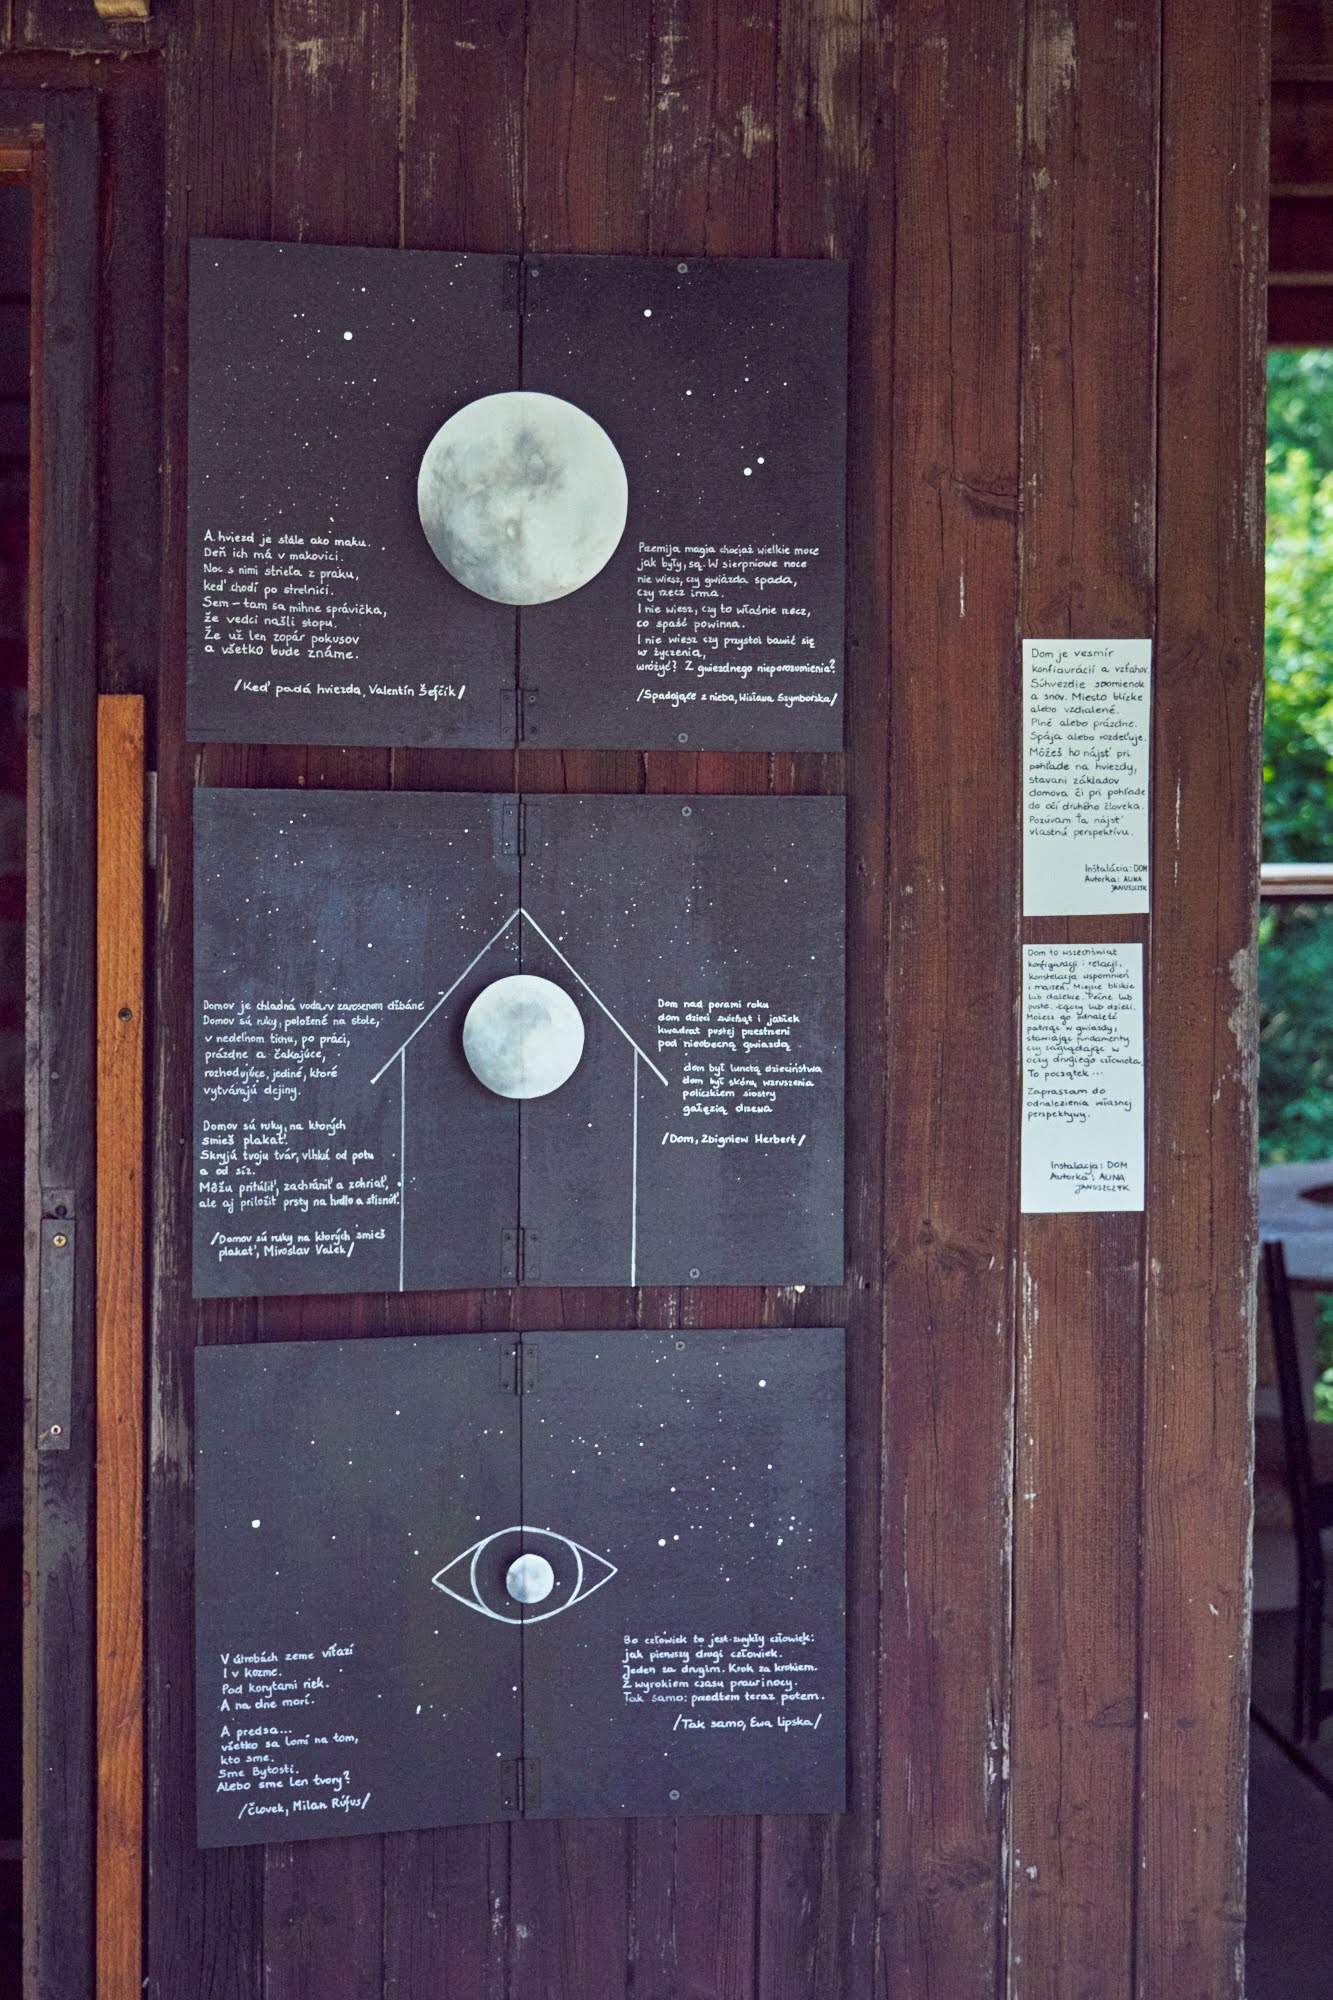 A hviezd je stále ako maku.
Deň ich má v makovici.
Noc s nimi strieľa z praku,
keď chodí po strelnici.
Sem-tam sa mihne správička,
že vedci našli stopu.
Že už len zopár pokusov
a všetko bude známe.
/Keď padá hviezda, Valentín Šefčík/
Przemija magia chociaż wielkie moce
jak były, są. W sierpniowe noce
nie wiesz, czy gwiazda spada,
czy rzecz inna.
I nie wiesz, czy to właśnie rzecz,
co spaść powinna.
I nie wiesz czy przystoi bawić się
w życzenia,
wróżyć? Z gwiezdnego nieporozumienia?
/Spadające z nieba, Wisława Szymborska/
Domov je chladná voda v zarosenom džbáne
Domov sú ruky, položené na stole,
v nedeľnom tichu, po práci,
prázdne a čakajúce,
rozhodujúce, jediné, ktoré
vytvárajú dejiny.
Domov sú ruky, na ktorých
smieš plakať.
Skryjú tvoju tvár, vlhkú od potu
a od sĺz.
Môžu pritúliť, zachrániť a zohriať,
ale aj priložiť prsty na hrdlo a stisnúť.
/Domov sú ruky na ktorých smieš
plakať, Miroslav Válek/
Dom nad porami roku
dom dzieci zwierząt i jabłek
kwadrat pustej przestrzeni
pod nieobecną gwiazdą
dom był lunetą dzieciństwa
dom był skórą wzruszenia
policzkiem siostry
gałęzią drzewa
/Dom, Zbigniew Herbert/
V útrobách zeme víťazí
I v kozme.
Pod korytami riek.
A na dne morí.
A predsa...
všetko sa lomí na tom,
kto sme.
Sme Bytosti.
Alebo sme len tvory?
/Človek, Milan Rúfus/
Bo człowiek to jest zwykły człowiek:
jak pierwszy drugi człowiek.
Jeden za drugim. Krok za krokiem.
Z wyrokiem czasu prawinocy.
Tak samo: przedtem teraz potem.
/Tak samo, Ewa Lipska/
Dom je vesmír
konfigurácií a vzťahov.
Súhvezdie spomienok
a snov. Miesto blízke
alebo vzdialené.
Plné alebo prázdne.
Spája alebo rozdeľuje.
Môžeš ho nájsť pri
pohľade na hviezdy,
stavaní základov
domova či pri pohľade
do očí druhého človeka.
Pozývam Ťa nájsť
vlastnú perspektívu.
Inštalácia: DOM
Autorka: ALINA
JANUSZCZYK
Dom to wszechświat
konfiguracji i relacji,
konstelacja wspomnień
i marzeń. Miejsce bliskie
lub dalekie. Pełne lub
puste. Łączy lub dzieli.
Możesz go odnaleźć
patrząc w gwiazdy,
stawiając fundamenty
czy zaglądając w
oczy drugiego człowieka.
To początek...
Zapraszam do
odnalezienia własnej
perspektywy.
Instalacja: DOM
Autorka: ALINA
JANUSZCZYK